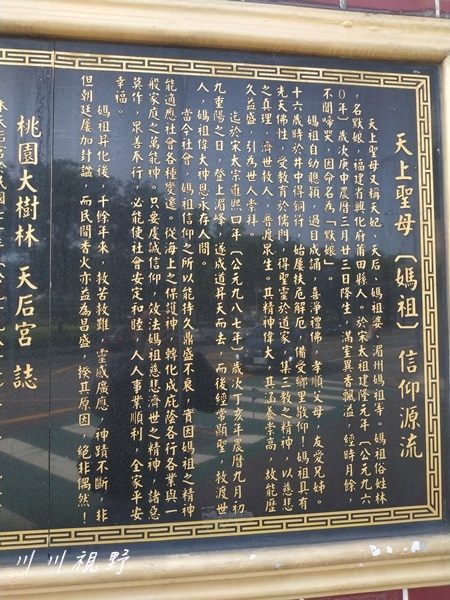 天上聖母〔媽祖〕信仰源流
天上聖母又稱天妃、天后、媽祖婆、湄州媽祖等。媽祖俗姓林
，名默娘，福建省興化府莆田縣人。於宋太祖建隆元年（公元九六
０年）歲次庚申農曆三月廿三日降生，滿室異香飄溢，經時月餘，
不聞啼哭，因命名為「默娘」。
媽祖自幼聰穎，過目成誦，喜淨禮佛，孝順父母，友愛兄姊。
十六歲時於井中得銅符，始屢扶厄解厄，備受鄉里敬仰！媽祖具有
先天佛性，受教育於儒門，得聖靈於道家，集三教之精神，以慈悲
之真理，濟世救人，普渡眾生。其精神偉大，其涵養崇高，故能歷
久益盛，引為世人崇拜。
迄於宋太宗雍熙四年（公元九八七年）歲次丁亥年農曆九月初
九重陽之日，登上湄峰，遂成道昇天而去，而後經常顯聖，救渡世
人，媽祖偉大神恩永存人間。
當今社會，媽祖信仰之所以能持久鼎盛不衰，實因媽祖之精神
能適應社會各種變遷。從海上之保護神，轉化成庇蔭各行各業與一
般家庭之萬能神。只要虔誠信仰，效法媽祖慈悲濟世之精神，諸惡
莫作，眾善奉行，必能使社會安定和睦，人人事業順利，全家平安
幸福。
媽祖昇化後，千餘年來，救苦救難，靈感廣應，神蹟不斷，非
但朝廷屢加封諡，而民間香火亦益為昌盛，揆其原因，絕非偶然！
桃園大樹林 天后宮 誌
川川視野